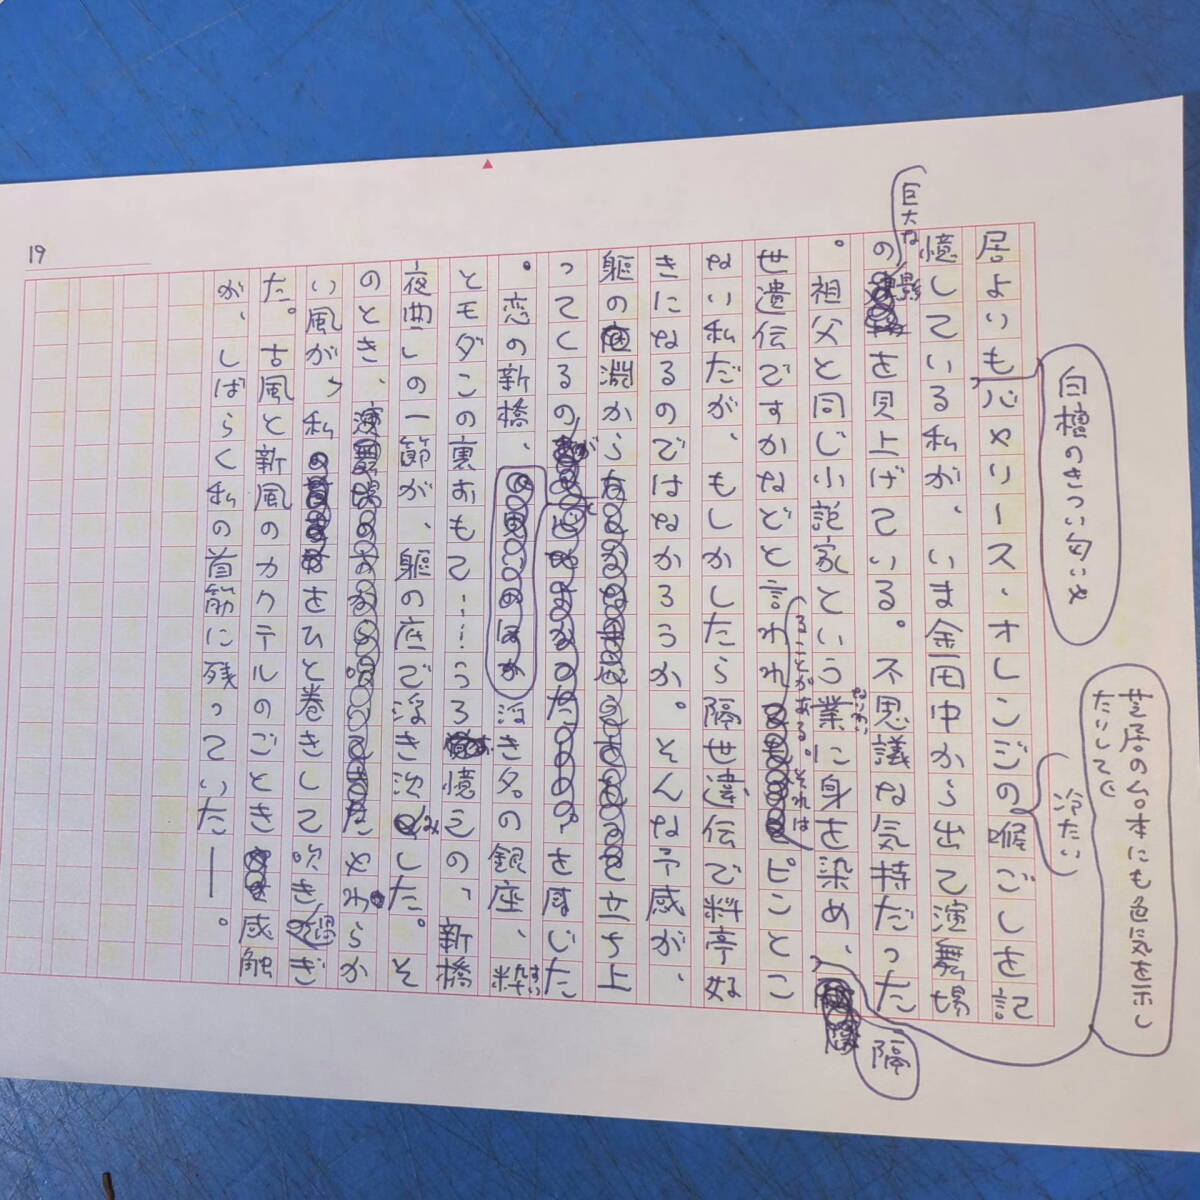 居よいもバャリース・オレンジの喉ごしを記
白檀のきつい匂いや
冷たい
憶している私が、いま金田中から出て演舞場
の影を見上げている。不思議な気持だった
巨大な
。祖父と同じ小説家という業に身を染め、
なりわい
芝居の台本にも色気を示し
たりして
隔
世遺伝ですかなどと言われピンとこ
ることがある。それは
ない私だが、もしかしたら隔世遺伝で料亭好
きになるのではなかろうか。そんな予感が、
躯の淵から立ち上
ってくるのを感じた
が
。恋の新橋、浮き名の銀座、粋
すい
とモダンの裏おもて……うろ憶えの、新橋
夜曲の一節が、躯の底で浮き沈みした。そ
のとき、やわらか
い風が、私をひと巻きして吹き過ぎ
た。古風と新風のカクテルのごとき感触
が、しばらく私の首筋に残っていた―。
19